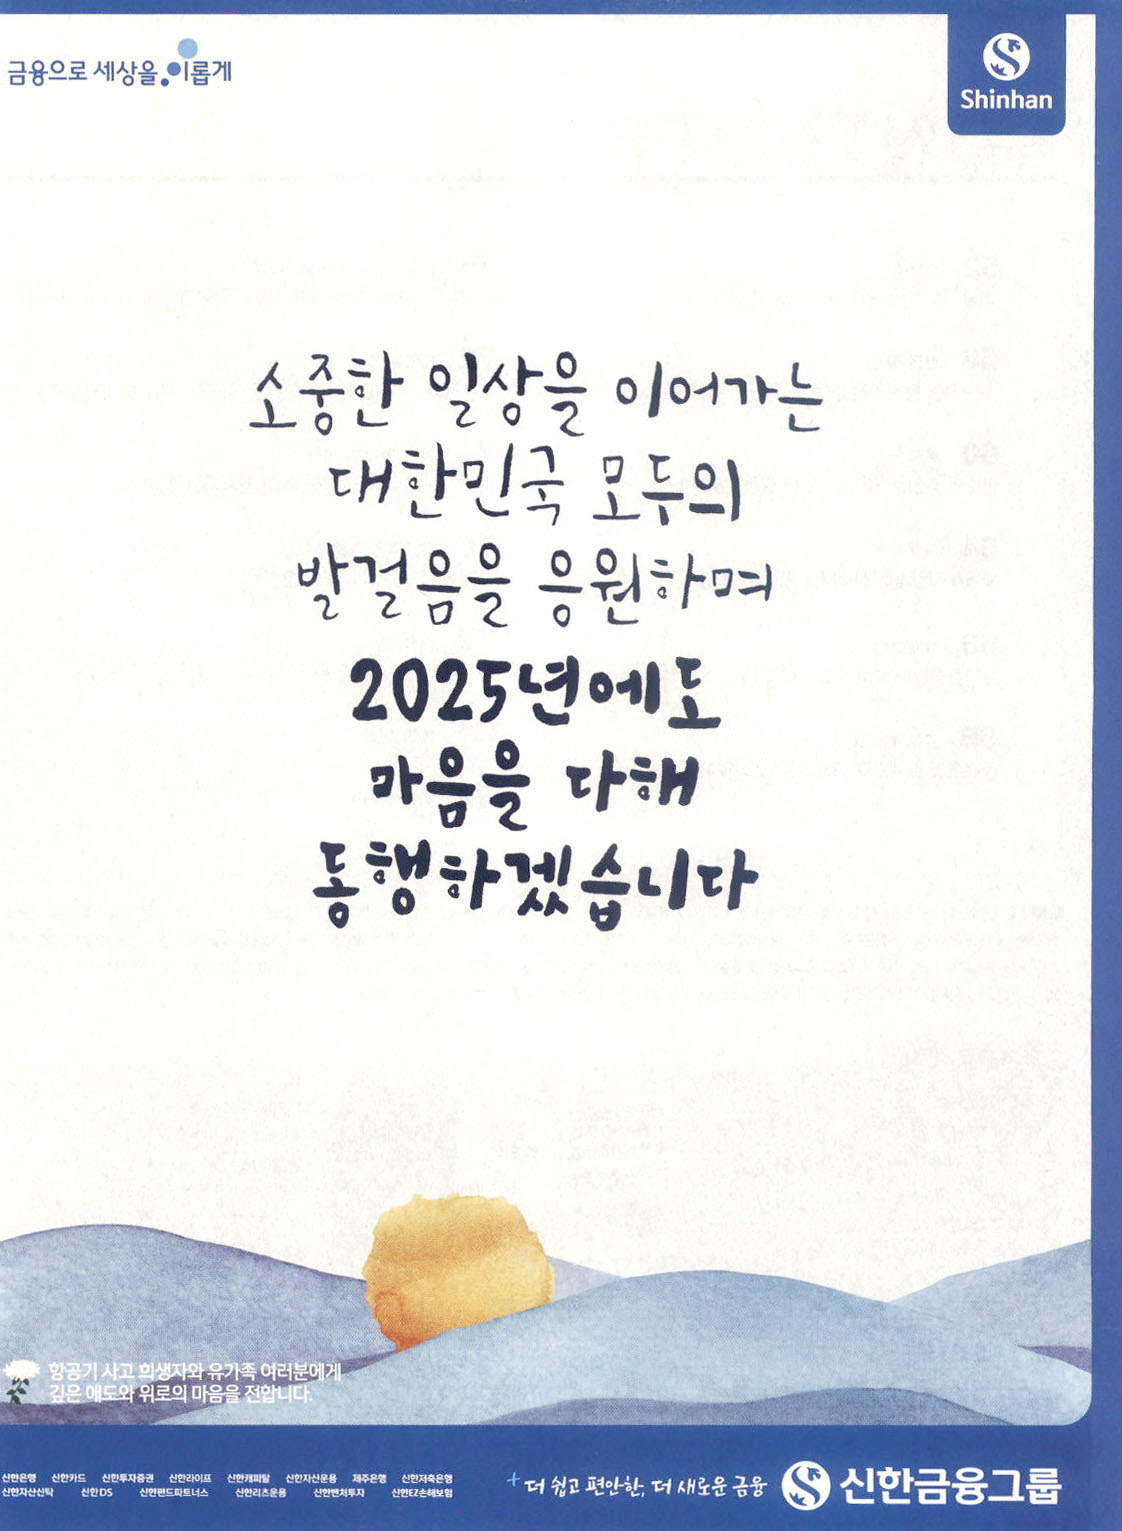 금융으로 세상을 이롭게
Shinhan
소중한 일상을 이어가는
대한민국 모두의
발걸음을 응원하며
2025년에도
마음을 다해
동행하겠습니다
항공기 사고 희생자와 유가족 여러분에게
깊은 애도와 위로의 마음을 전합니다.
신한은행 신한카드 신한투자증권 신한라이프 신한캐피탈 신한자산운용 제주은행 신한저축은행
신한자산신탁 신한DS 신한펀드파트너스 신한리츠운용 신한벤처투자 신한EZ손해보험
+더 쉽고 편안한, 더 새로운 금융
신한금융그룹